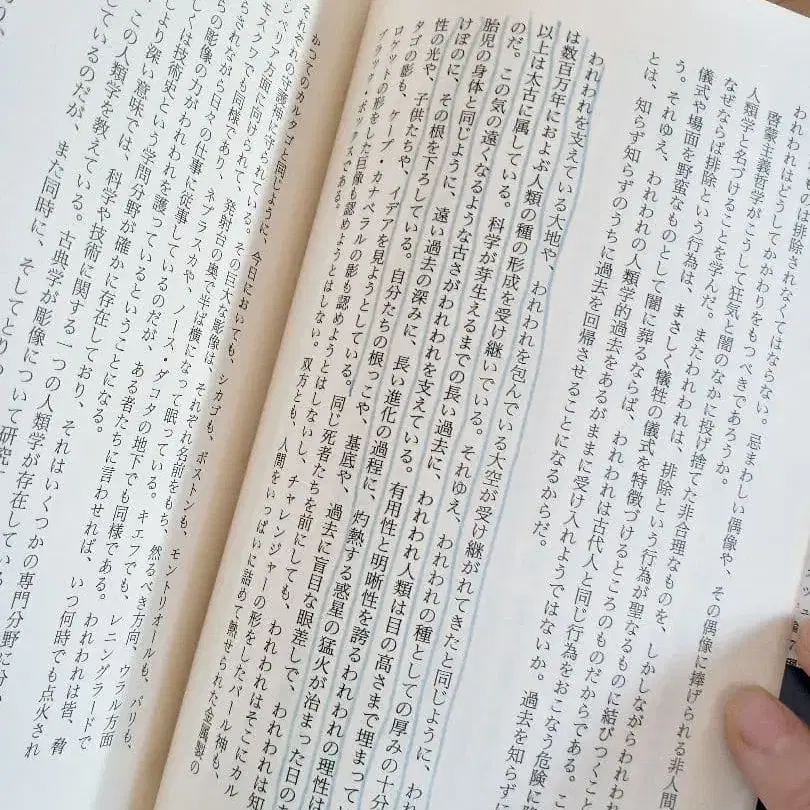 のは排除されなくてはならない。忌まわしい偶像や、その偶像に捧げられる非人間
われわれはどうしてかかわりをもつべきであろうか。
啓蒙主義哲学がこうして狂気と闇のなかに投げ捨てた非合理なものを、しかしながらわれわれ
人類学と名づけることを学んだ。またわれわれは、排除という行為が聖なるものに結びつくこと
なぜならば排除という行為は、まさしく犠牲の儀式を特徴づけるところのものだからである。こ
儀式や場面を野蛮なものとして闇に葬るならば、われわれは古代人と同じ行為をおこなう危険に
う。それゆえ、われわれの人類学的過去をあるがままに受け入れようではないか。過去を知らずに
とは、知らず知らずのうちに過去を回帰させることになるからだ。
われわれを支えている大地や、われわれを包んでいる大空が受け継がれてきたと同じように、われ
は数百万年におよぶ人類の種の形成を受け継いでいる。それゆえ、われわれの種としての厚みの十分
以上は太古に属している。科学が芽生えるまでの長い過去に、われわれ人類は目の高さまで埋まって
のだ。この気の遠くなるような古さがわれわれを支えている。有用性と明晰性を誇るわれわれの理性は
胎児の身体と同じように、遠い過去の深みに、長い進化の過程に、灼熱する惑星の猛火が治まった日のあ
けぼのに、その根を下ろしている。自分たちの根っこや、基底や、過去に盲目な眼差しで、われわれは知
性の光や、子供たちや、イデアを見ようとしている。同じ死者たちを前にしても、われわれはそこにカル
タゴの影も、ケープ・カナベラルの影も認めようとはしないし、チャレンジャーの形をしたバール神も、
ロケットの形をした巨像も認めようとはしない。双方とも、人間をいっぱいに詰めて熱せられた金属製の
ブラック・ボックスである。
かつてのカルタゴと同じように、今日においても、シカゴも、ボストンも、モントリオールも、パリも、
それぞれの守護神に守られている。その巨大な彫像は、それぞれ名前をもち、然るべき方向、ウラル方面
シベリア方面に向けられて、発射台の奥で半ば横になって眠っている。キエフでも、レニングラードで
モスクワでも同様であり、ネブラスカや、ノース・ダコタの地下でも同様である。われわれは皆、脅
らされながら日々の仕事に従事しているのだが、ある者たちに言わせれば、いつ何時でも点火され
らの彫像の力がわれわれを護っているということになる。
しくは技術史という学問分野が確かに存在しており、それはいくつかの専門分野に分
より深い意味では、科学や技術に関する一つの人類学が存在している
この人類学を教えている。古典学が彫像について研究
ているのだが、また同時に、そしてとりわ